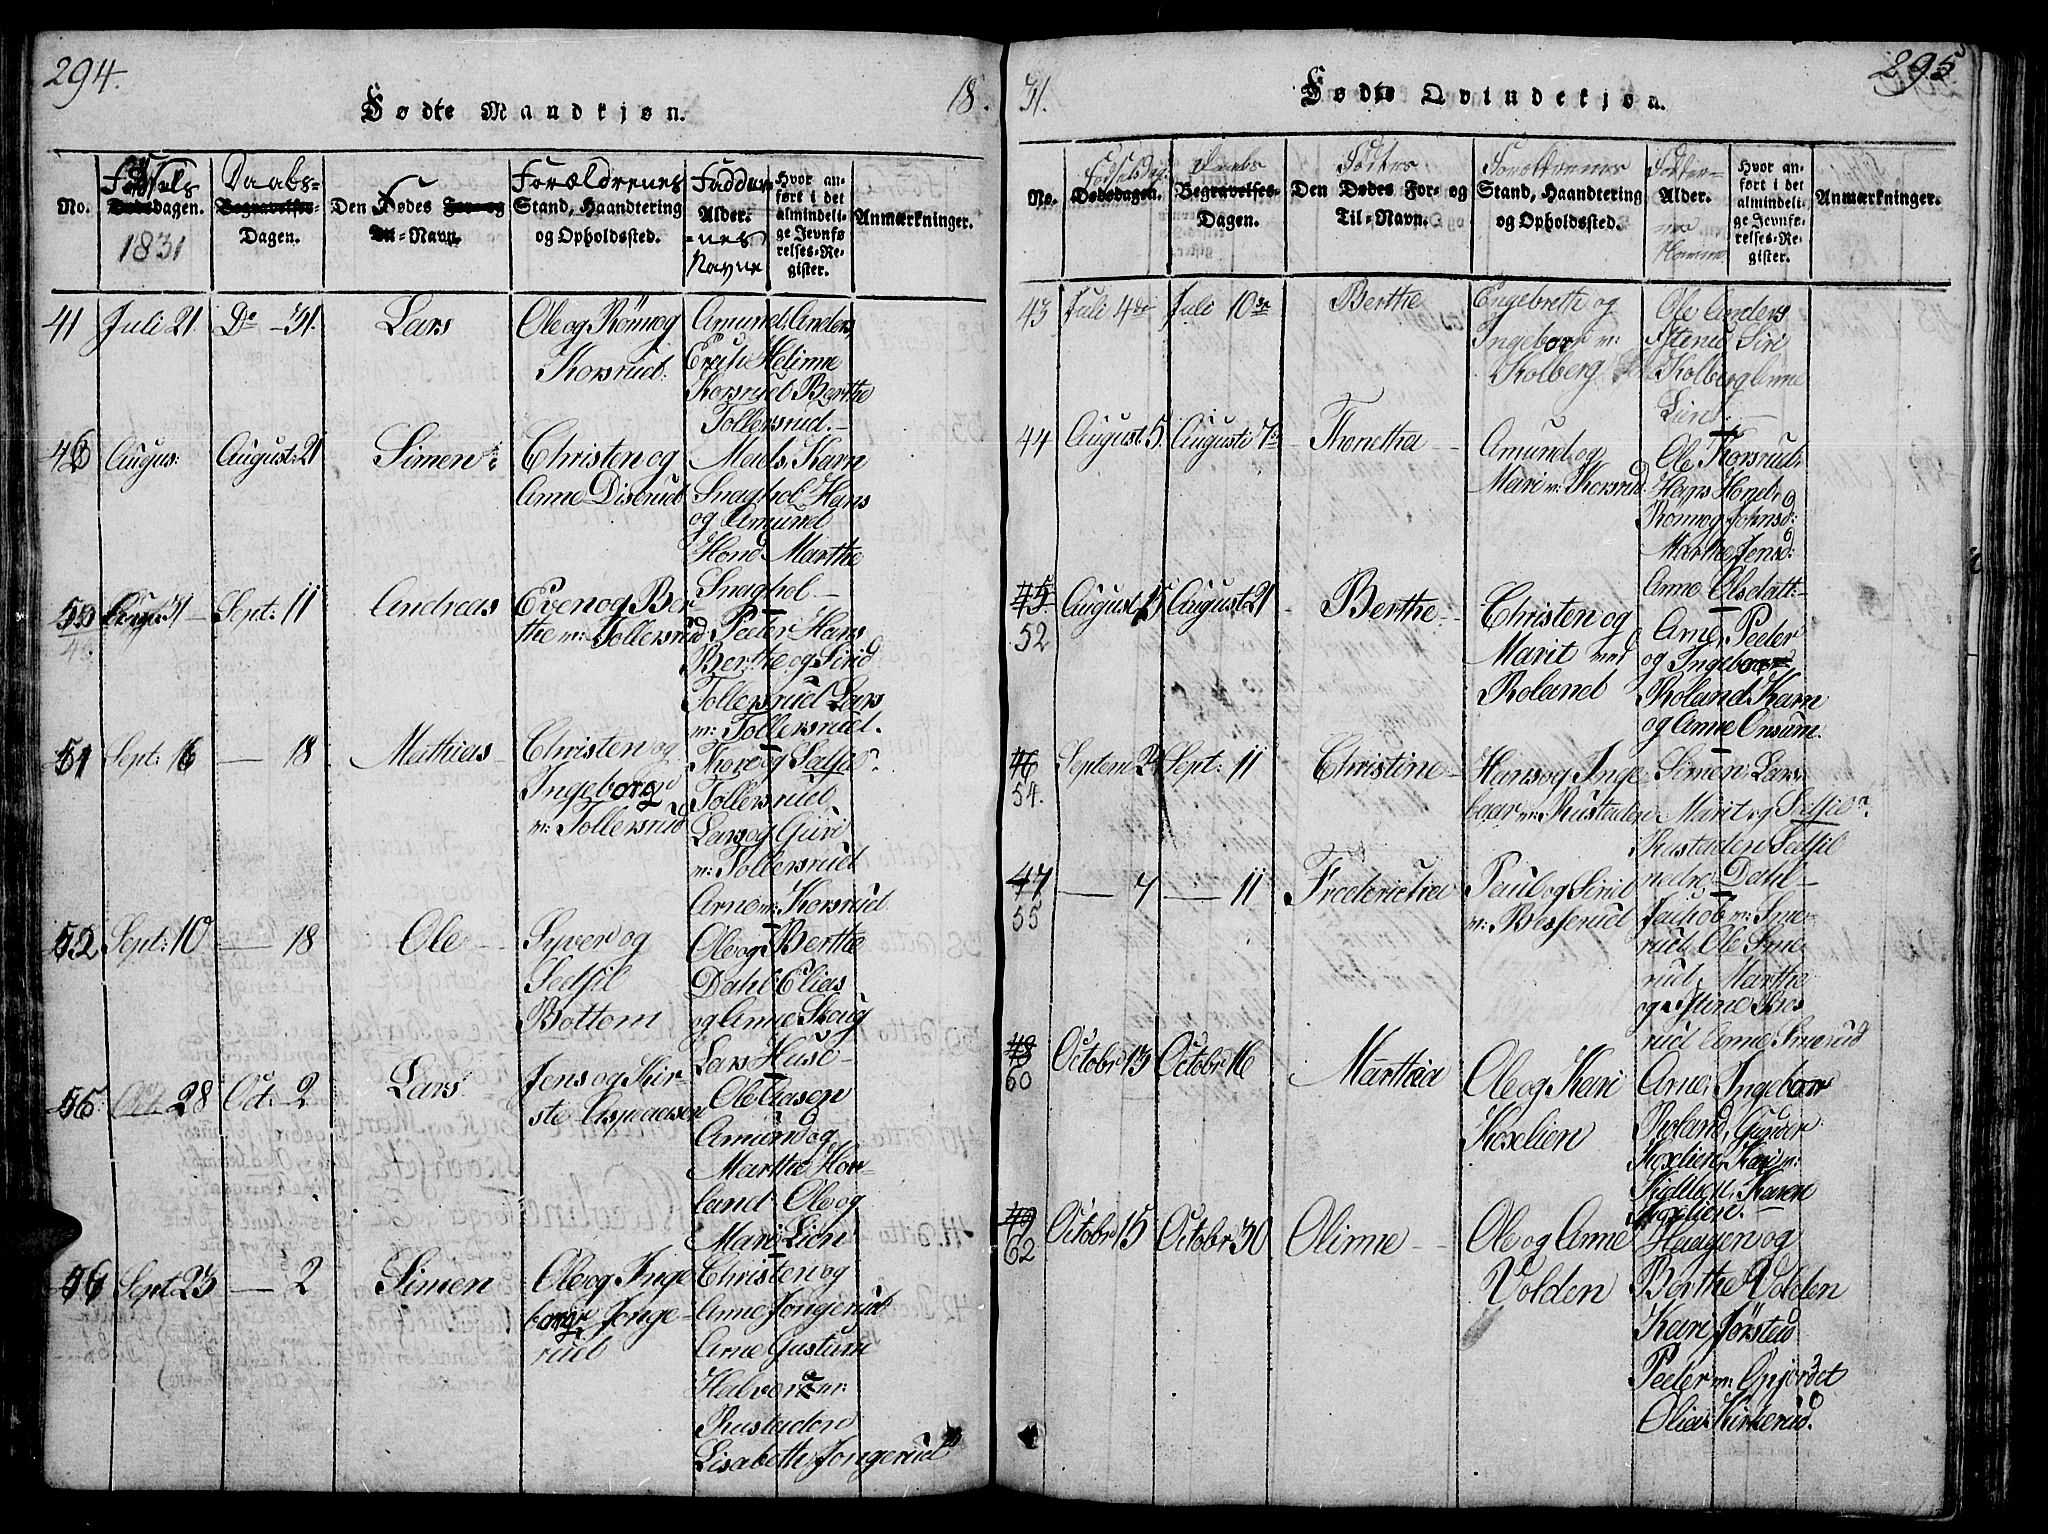 294.
18.
Fødte Mandkjøn.
No.
Fødsels
Dødsdagen.
1831
Daabs-
Begravelses-
Dagen.
Den Fødes For- og
Til-Navn.
Forældrenes
Stand, Haandtering
og Opholdssted.
Fadder
Alder.
nes
Navne
Hvor an-
ført i det
almindeli-
ge Jevnfø
relses-Re-
gister.
Anmærkninger.
41 Juli 21 Do - 31. Lars Ole og Rönnog
Korsrud.
Amund, Anders,
Erich Helinne
Korsrud Berthe
Tollersrud.-
Augus: August: 21 Simen Christen og
Anne Diserud
Mads, Karn
Snaghol Hans
og Amund
Hond Marthe
Snaghol -
50 31 - Sept: 11 Andreas Even og Ber-
the m: Tollersrud
Peeter Hans
Berthe og Sirid
Tollersrud Lars
m: Tollersrud.
51 Sept: 16 — 18 Mathias Christen og
Ingeborg
m: Tollersrud
Thore og Selfie?
Tollersrud
Lars og Guri
m: Tollersrud
Arne m: Korsrud
52 Sept: 10 — 18 Ole Syver og
Sedsil
Bottom
Ole og Berthe
Dahl Elias
og Anne Skoug
Lars Huse -
56. 28 Oct: 2 Lars Jens og Kir-
ste Aspaasen
Ole Aasen
Amund og
Marthe Hov-
land Ole og
Mari Lien
56 Sept 23 — 2 Simen Ole og Inge
borg Jonge-
rud
Christen og
Anne Jongerud
Arne Gustum
Halvor m:
Rustaden
Lisabeth Jongerud
31.
295
Fødte Qvindekjøn.
No.
Fødselsdag:
Dødsdagen.
Daabs
Begravelses-
Dagen.
Fødtes
Den Dødes For- og
Til-Navn.
Forældrenes
Stand, Haandtering
og Opholdssted.
Fadder-
Alder.
ne
Hvor an-
ført i det
almindeli-
ge Jevnfø-
relses-Re-
gister.
Anmærkninger.
43 Juli 4de Juli 10de Berthe Engebrethe og
Ingebor m:
Kolberg
Ole Anders
Siri
Kolberg Anne
Lien
44 August 5. Augusti 7de Thonetha Amund og
Mari m: Korsrud
Ole Korsrud,
Hans Hond
Rönnog Johnsd:
Marthe Jensd:
Anne Olsdatt:
45.
52
August 15 August 21 Berthe Christen og
Marit ved
Roland
Arne, Peeter
og Ingebor
Roland Karn
og Anne Onsum.
46
54.
Septem 2 Sept: 11 Christine Hans og Inge
baar m: Rustaden
Simen Lars
Marit og Selfie?
Rustaden Sedsil
nedre Dahl-
47
55
— 7 — 11 Frederickia Paul og Sirid
m: Besserud
Jachob m: Sme-
rud, Ole Sme
rud Marthe
og Stine Bes
rud Anne Smerud
48
60
Octobr 13 Octobr 16 Marthea Ole og Kari
Koxelien
Arne, Ingebor
Roland, Gunder
Koxelien, Kari m:
Karen
Koxelien.
49
62
Octobr 15 Octobr 30 Olinne Ole og Anne
Volden
Haagen og
Berthe Volden
Kari Jörstad
Peeter m: Opjordet
Olia Kirkerud.